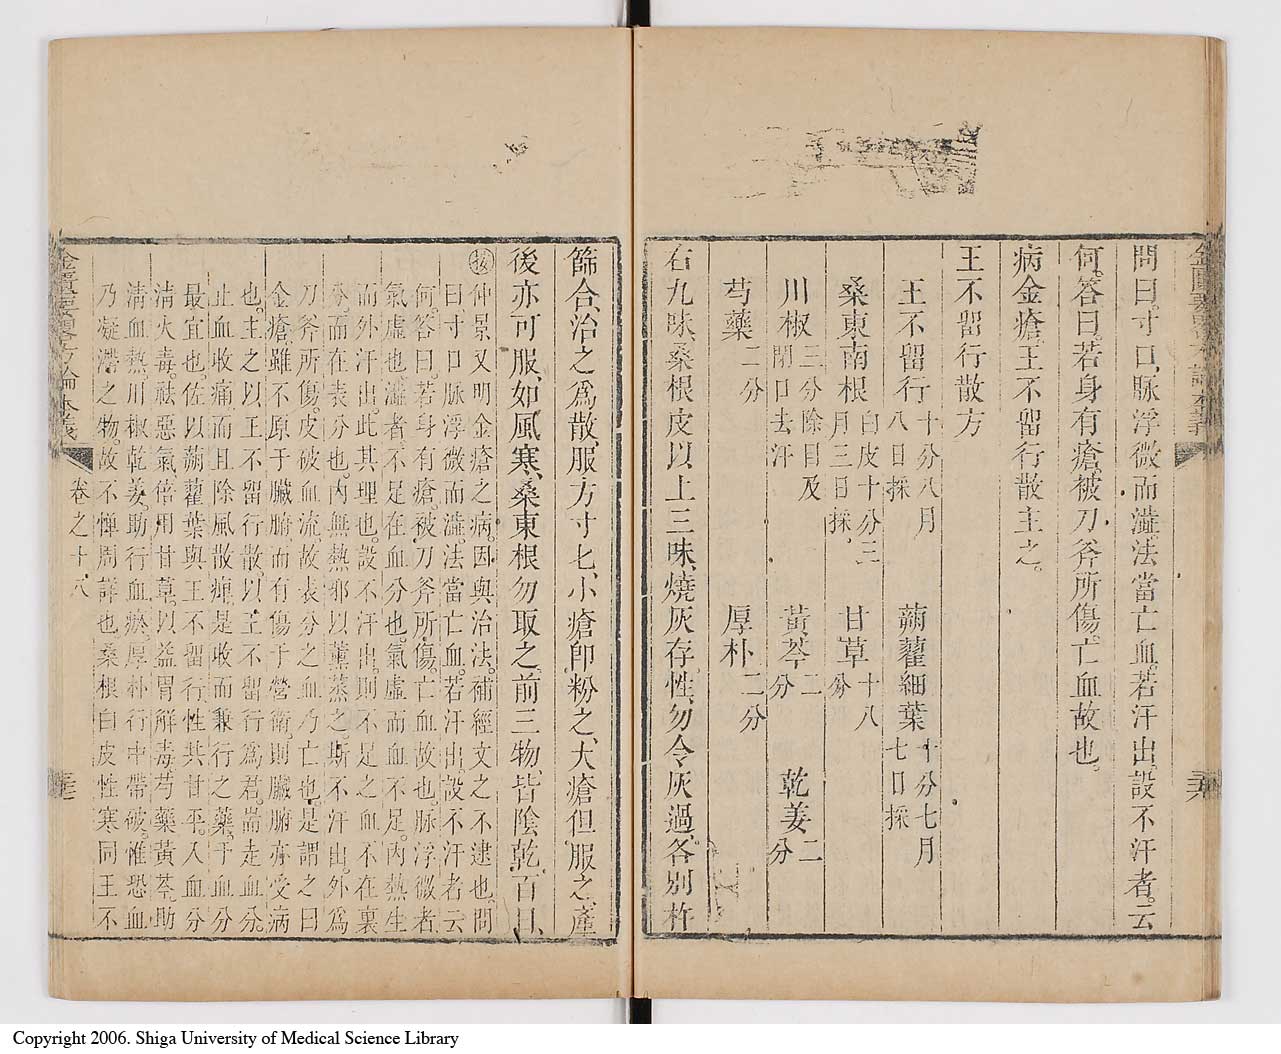 問曰寸口脉浮微而澁法當亡血若汗出設不汗者云
何答曰若身有瘡被刀斧所傷亡血故也
病金瘡王不留行散主之
王不留行散方
王不留行十分八月八日採 蒴藋細葉十分七月七日採
桑東南根白皮十分三月三日採 甘草十八分
川椒三分除目及閉口去汗 黃芩二分 乾姜二分
芍藥二分 厚朴二分
右九味桑根皮以上三味燒灰存性勿令灰過各別杵
篩合治之爲散服方寸匕小瘡即粉之大瘡但服之產
後亦可服如風寒桑東根勿取之前三物皆陰乾百日
按仲景又明金瘡之病因與治法補經文之不逮也問
曰寸口脉浮微而澁法當亡血若汗出設不汗者云
何答曰若身有瘡被刀斧所傷亡血故也脉浮微者
氣虛也澁者不足在血分也氣虛而血不足內熱生
而外汗出此其理也設不汗出則不足之血不在裏
分而在表分也內無熱邪以薰蒸之斯不汗出外爲
刀斧所傷皮破血流故表分之血乃亡也是謂之曰
金瘡雖不原于臟腑而有傷于營衛則臟腑亦受病
也主之以王不留行散以王不留行爲君耑走血分
止血收痛而且除風散痺是收而兼行之藥于血分
最宜也佐以蒴藋葉與王不留行性共甘平入血分
清火毒祛惡氣倍用甘草以益胃解毒芍藥黃芩助
清血熱川椒乾姜助行血瘀厚朴行中帶破惟恐血
乃凝滯之物故不憚周詳也桑根白皮性寒同王不
卷之十八